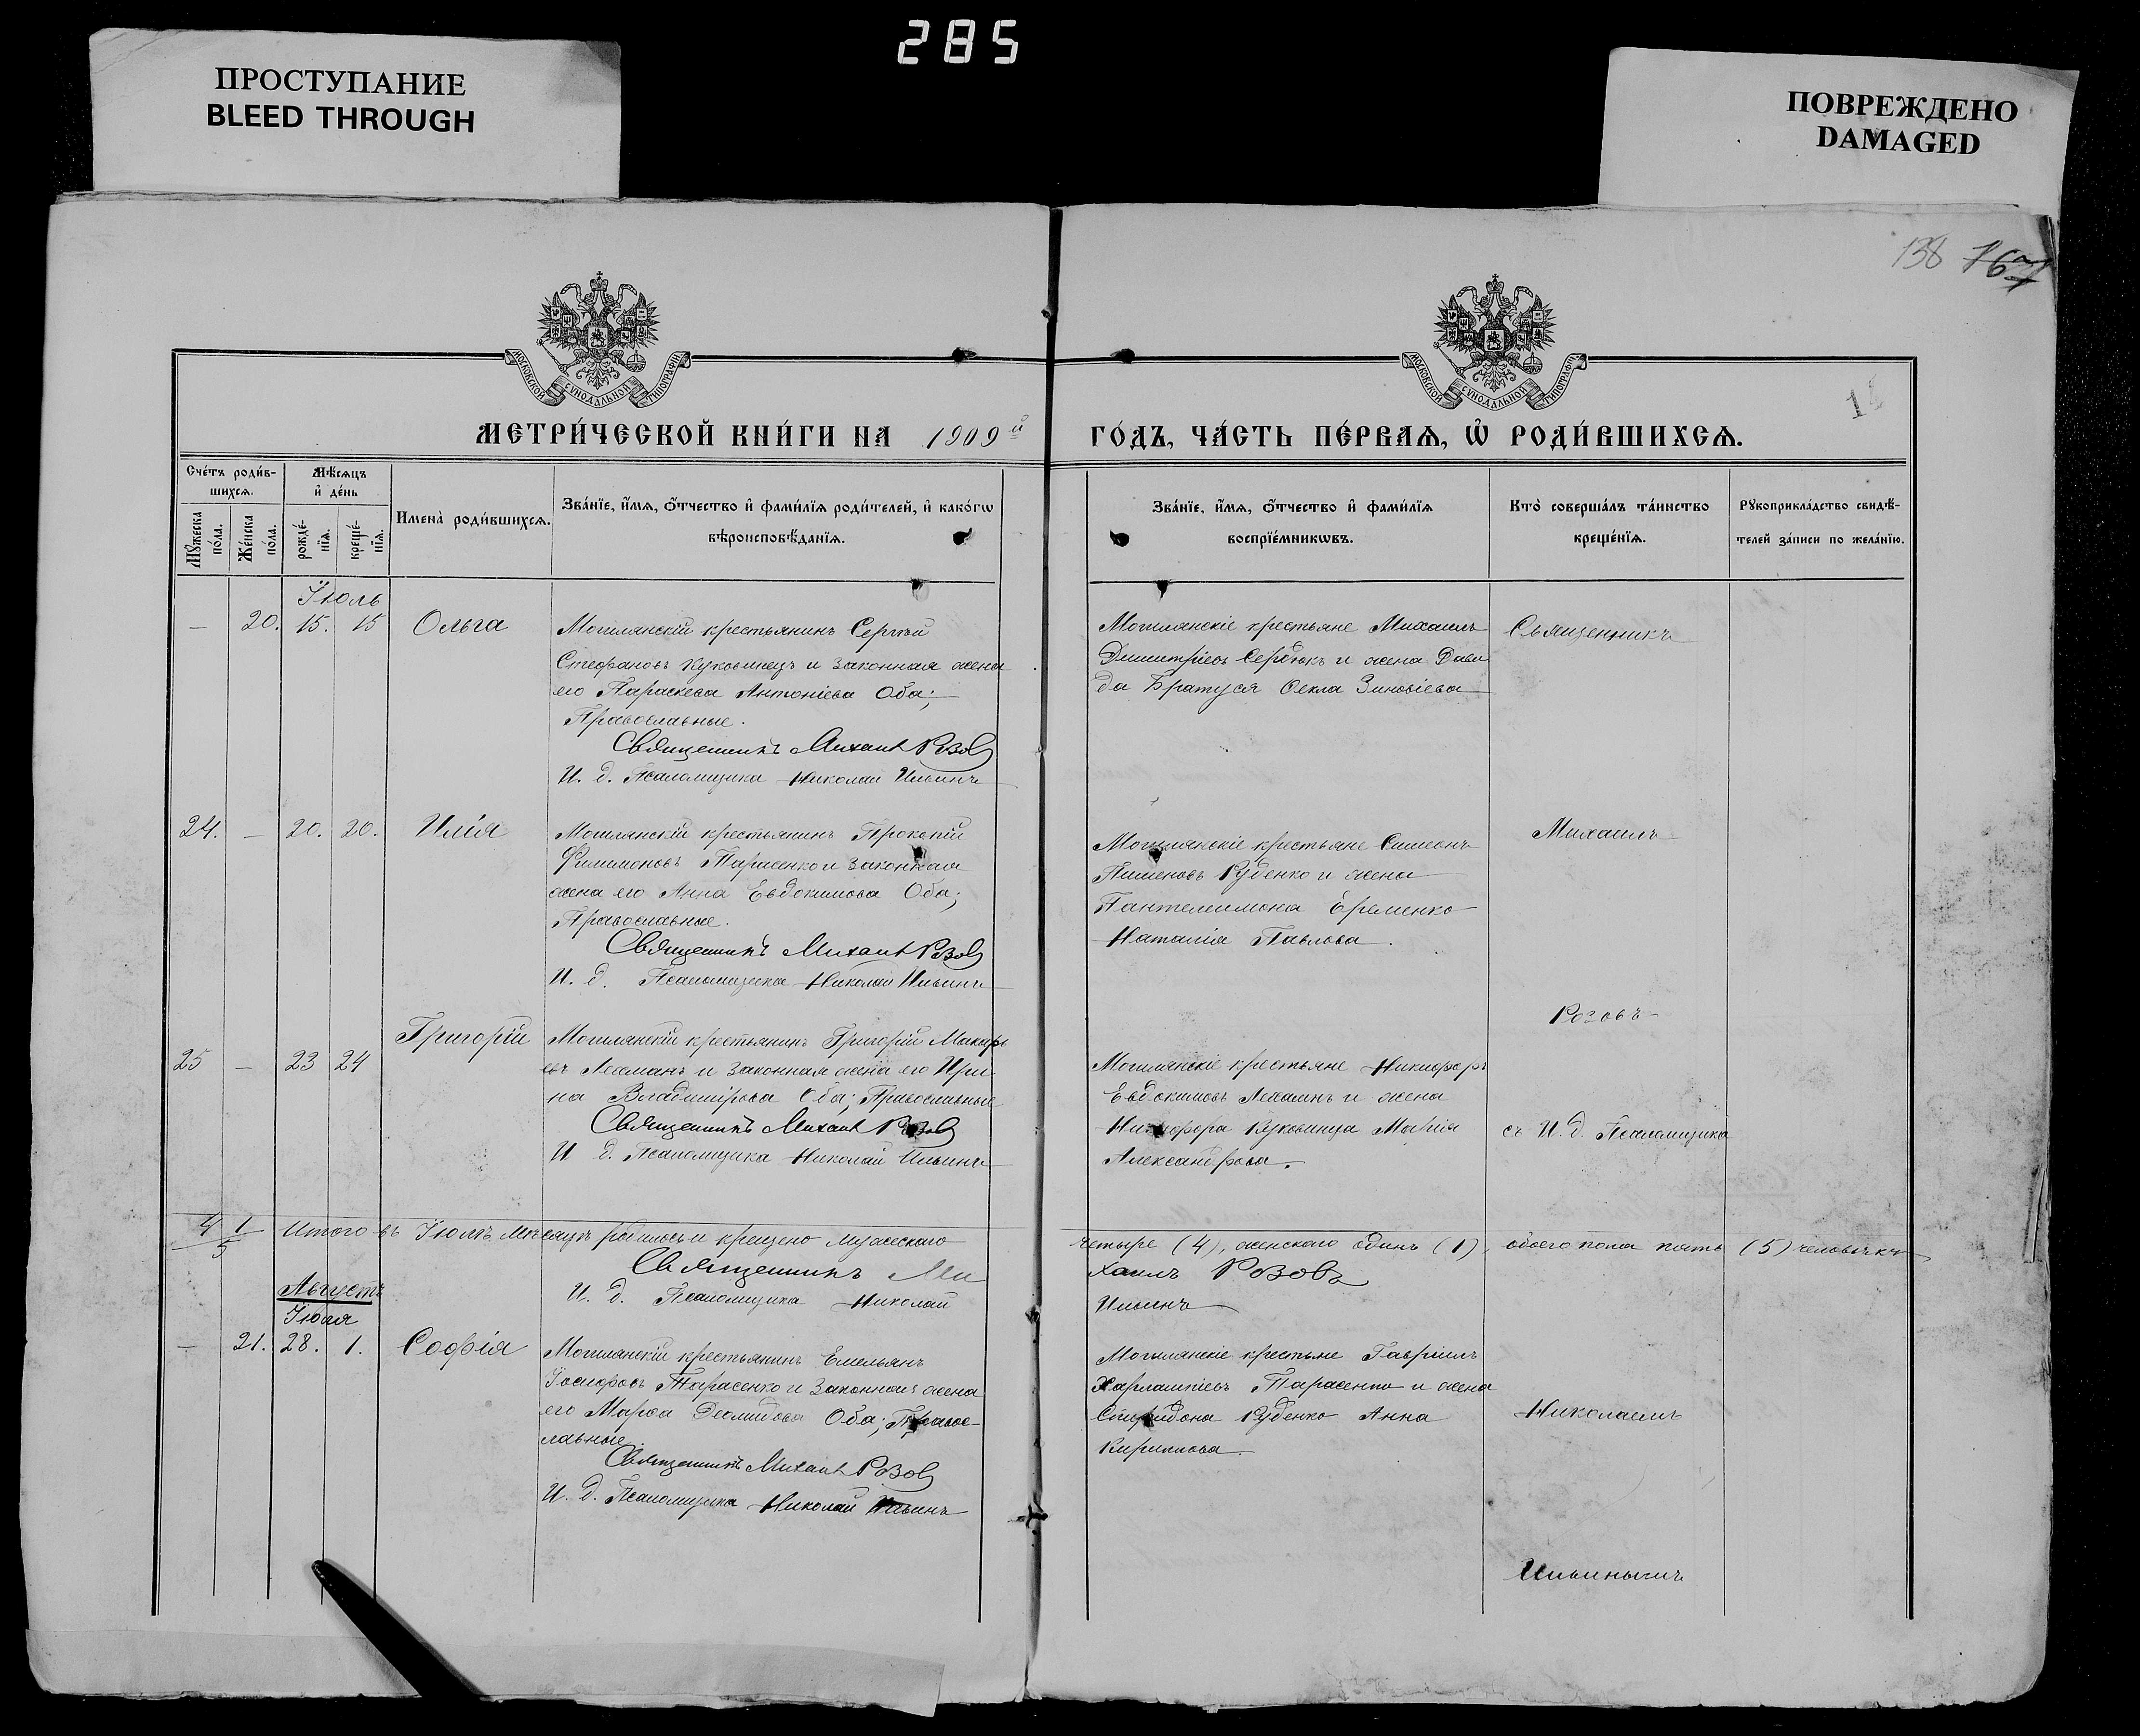 285
ПРОСТУПАНИЕ
BLEED THROUGH
ПОВРЕЖДЕНО
DAMAGED
138 167
МОСКОВСКОЙ СУНОДАЛЬНОЙ ТИПОГРАФІИ
МОСКОВСКОЙ СУНОДАЛЬНОЙ ТИПОГРАФІИ
МЕТРИ́ЧЕСКОЙ КНИ́ГИ НА 1909й
ГО́ДЪ, ЧА́СТЬ ПЕ́РВАѦ, Ѡ РОДИ́ВШИХСѦ.
Сче́тъ роди́в-
шихсѧ.
Мѣ́сѧцъ
и҆ де́нь
Мꙋ́жеска по́ла.
Же́нска по́ла.
рожде́-
нїѧ.
креще́-
нїѧ.
Имена̀ роди́вшихсѧ.
Зва́нїе, и҆́мѧ, ѻ҆́тчество и҆ фами́лїѧ роди́телей, и҆ како́гѡ
вѣроисповѣ́данїѧ.
Зва́нїе, и҆́мѧ, ѻ҆́тчество и҆ фами́лїѧ
воспрїе́мникѡвъ.
Кто̀ соверша́лъ та́инство
креще́нїѧ.
Рꙋкоприкла́дство свидѣ́-
телей за́писи по жела́нїю.
Іюль
— 20. 15. 15 Ольга
Могилянскій крестьянинъ Сергѣй
Стефановъ Куковинецъ и законная жена
его Параскева Антоніева Оба;
Православные.
Священникъ Михаил Розов
И. д. Псаломщика Николай Ильинъ
Могилянскіе крестьяне Михаилъ
Димитріевъ Сердюкъ и жена Дави
да Братуся Ѳекла Зиновіева
Священникъ
24. — 20. 20. Илія
Могилянскій крестьянинъ Прокопій
Филимоновъ Тарасенко и законная
жена его Анна Евдокимова Оба;
Православные.
Священникъ Михаил Розов
И. д. Псаломщика Николай Ильинъ
Могилянскіе крестьяне Симеонъ
Пименовъ Руденко и жена
Пантелеимона Еременко
Наталія Павлова.
Михаилъ
Розовъ
25 — 23 24 Григорій
Могилянскій крестьянинъ Григорій Макарі
евъ Лехманъ и законная жена его Ири-
на Владимірова Оба; Православные
Священникъ Михаил Розов
И д. Псаломщика Николай Ильинъ
Могилянскіе крестьяне Никифоръ
Евдокимовъ Лехманъ и жена
Никифора Куковинца Марія
Александрова.
съ И. д. Псаломщика
4 1
5
Итого въ Іюлѣ мѣсяцѣ родилось и крещено мужескаго
четыре (4), женскаго одинъ (1), обоего пола пять (5) человѣкъ
Священникъ Ми
хаилъ Розовъ
И. д. Псаломщика Николай
Ильинъ
Августъ
Іюля
— 21. 28. 1. Софія
Могилянскій крестьянинъ Емельянъ
Іосифовъ Тарасенко и законная жена
его Марѳа Діомидова Оба; Правос-
лавные.
Священникъ Михаил Розов
И. Д. Псаломщика Николай Ильинъ
Могилянскіе крестьяне Гавріилъ
Харлампіевъ Тарасенко и жена
Спиридона Руденко Анна
Кириллова.
Николаемъ
Ильинымъ